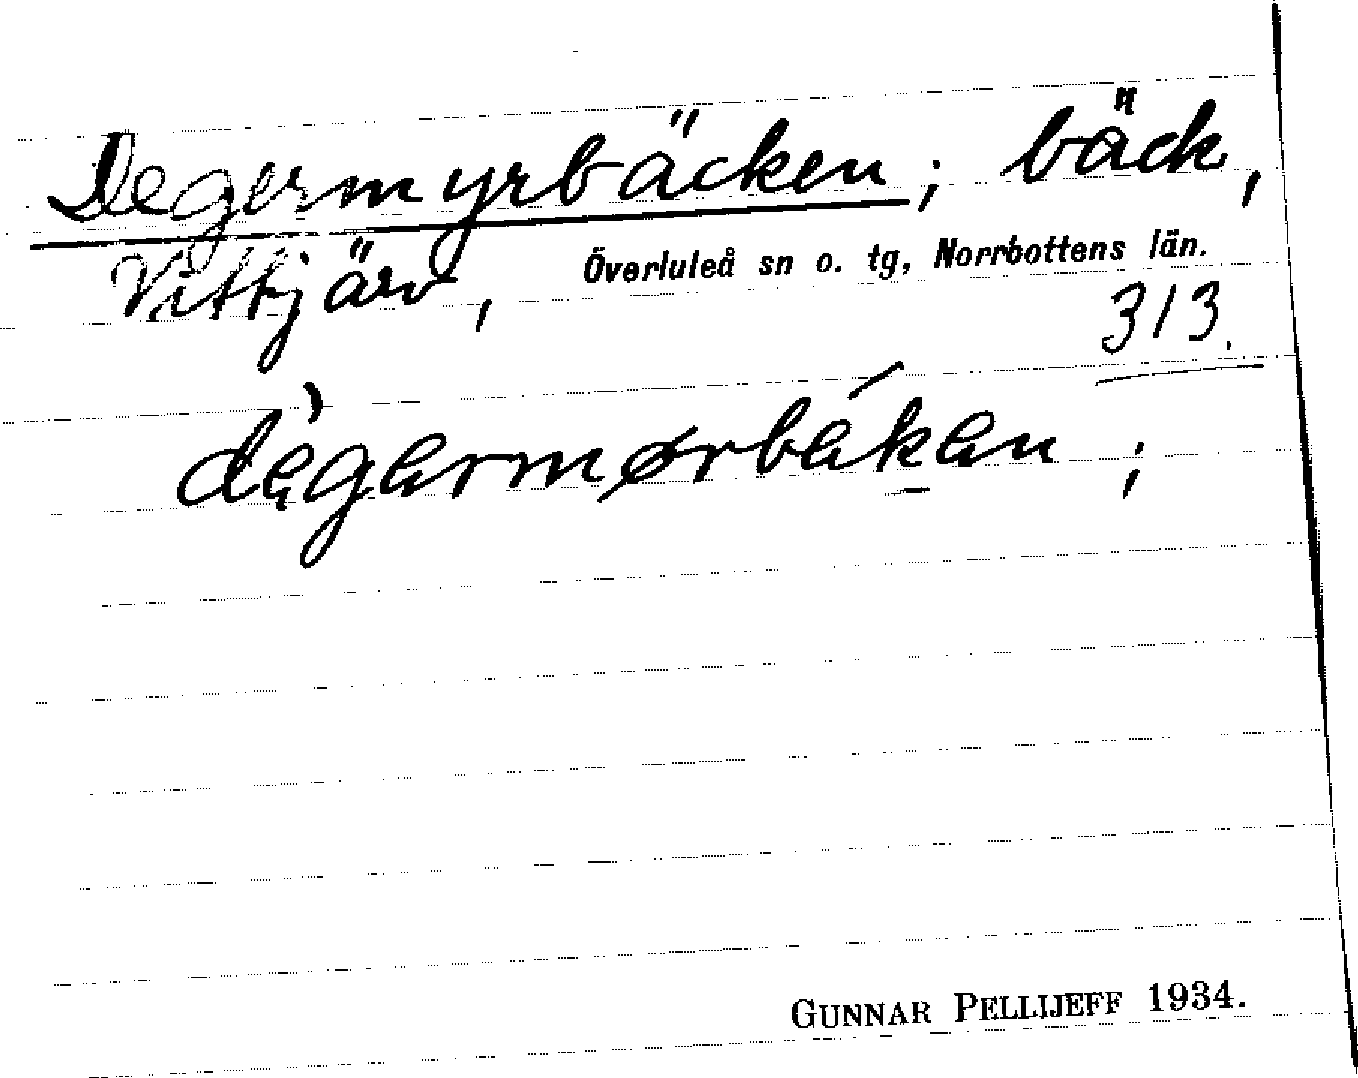 Degermyrbäcken; bäck,
Vittjärv, Överluleå sn o. tg, Norrbottens län.
313.
dègermørbéken;
GUNNAR PELLIJEFF 1934.